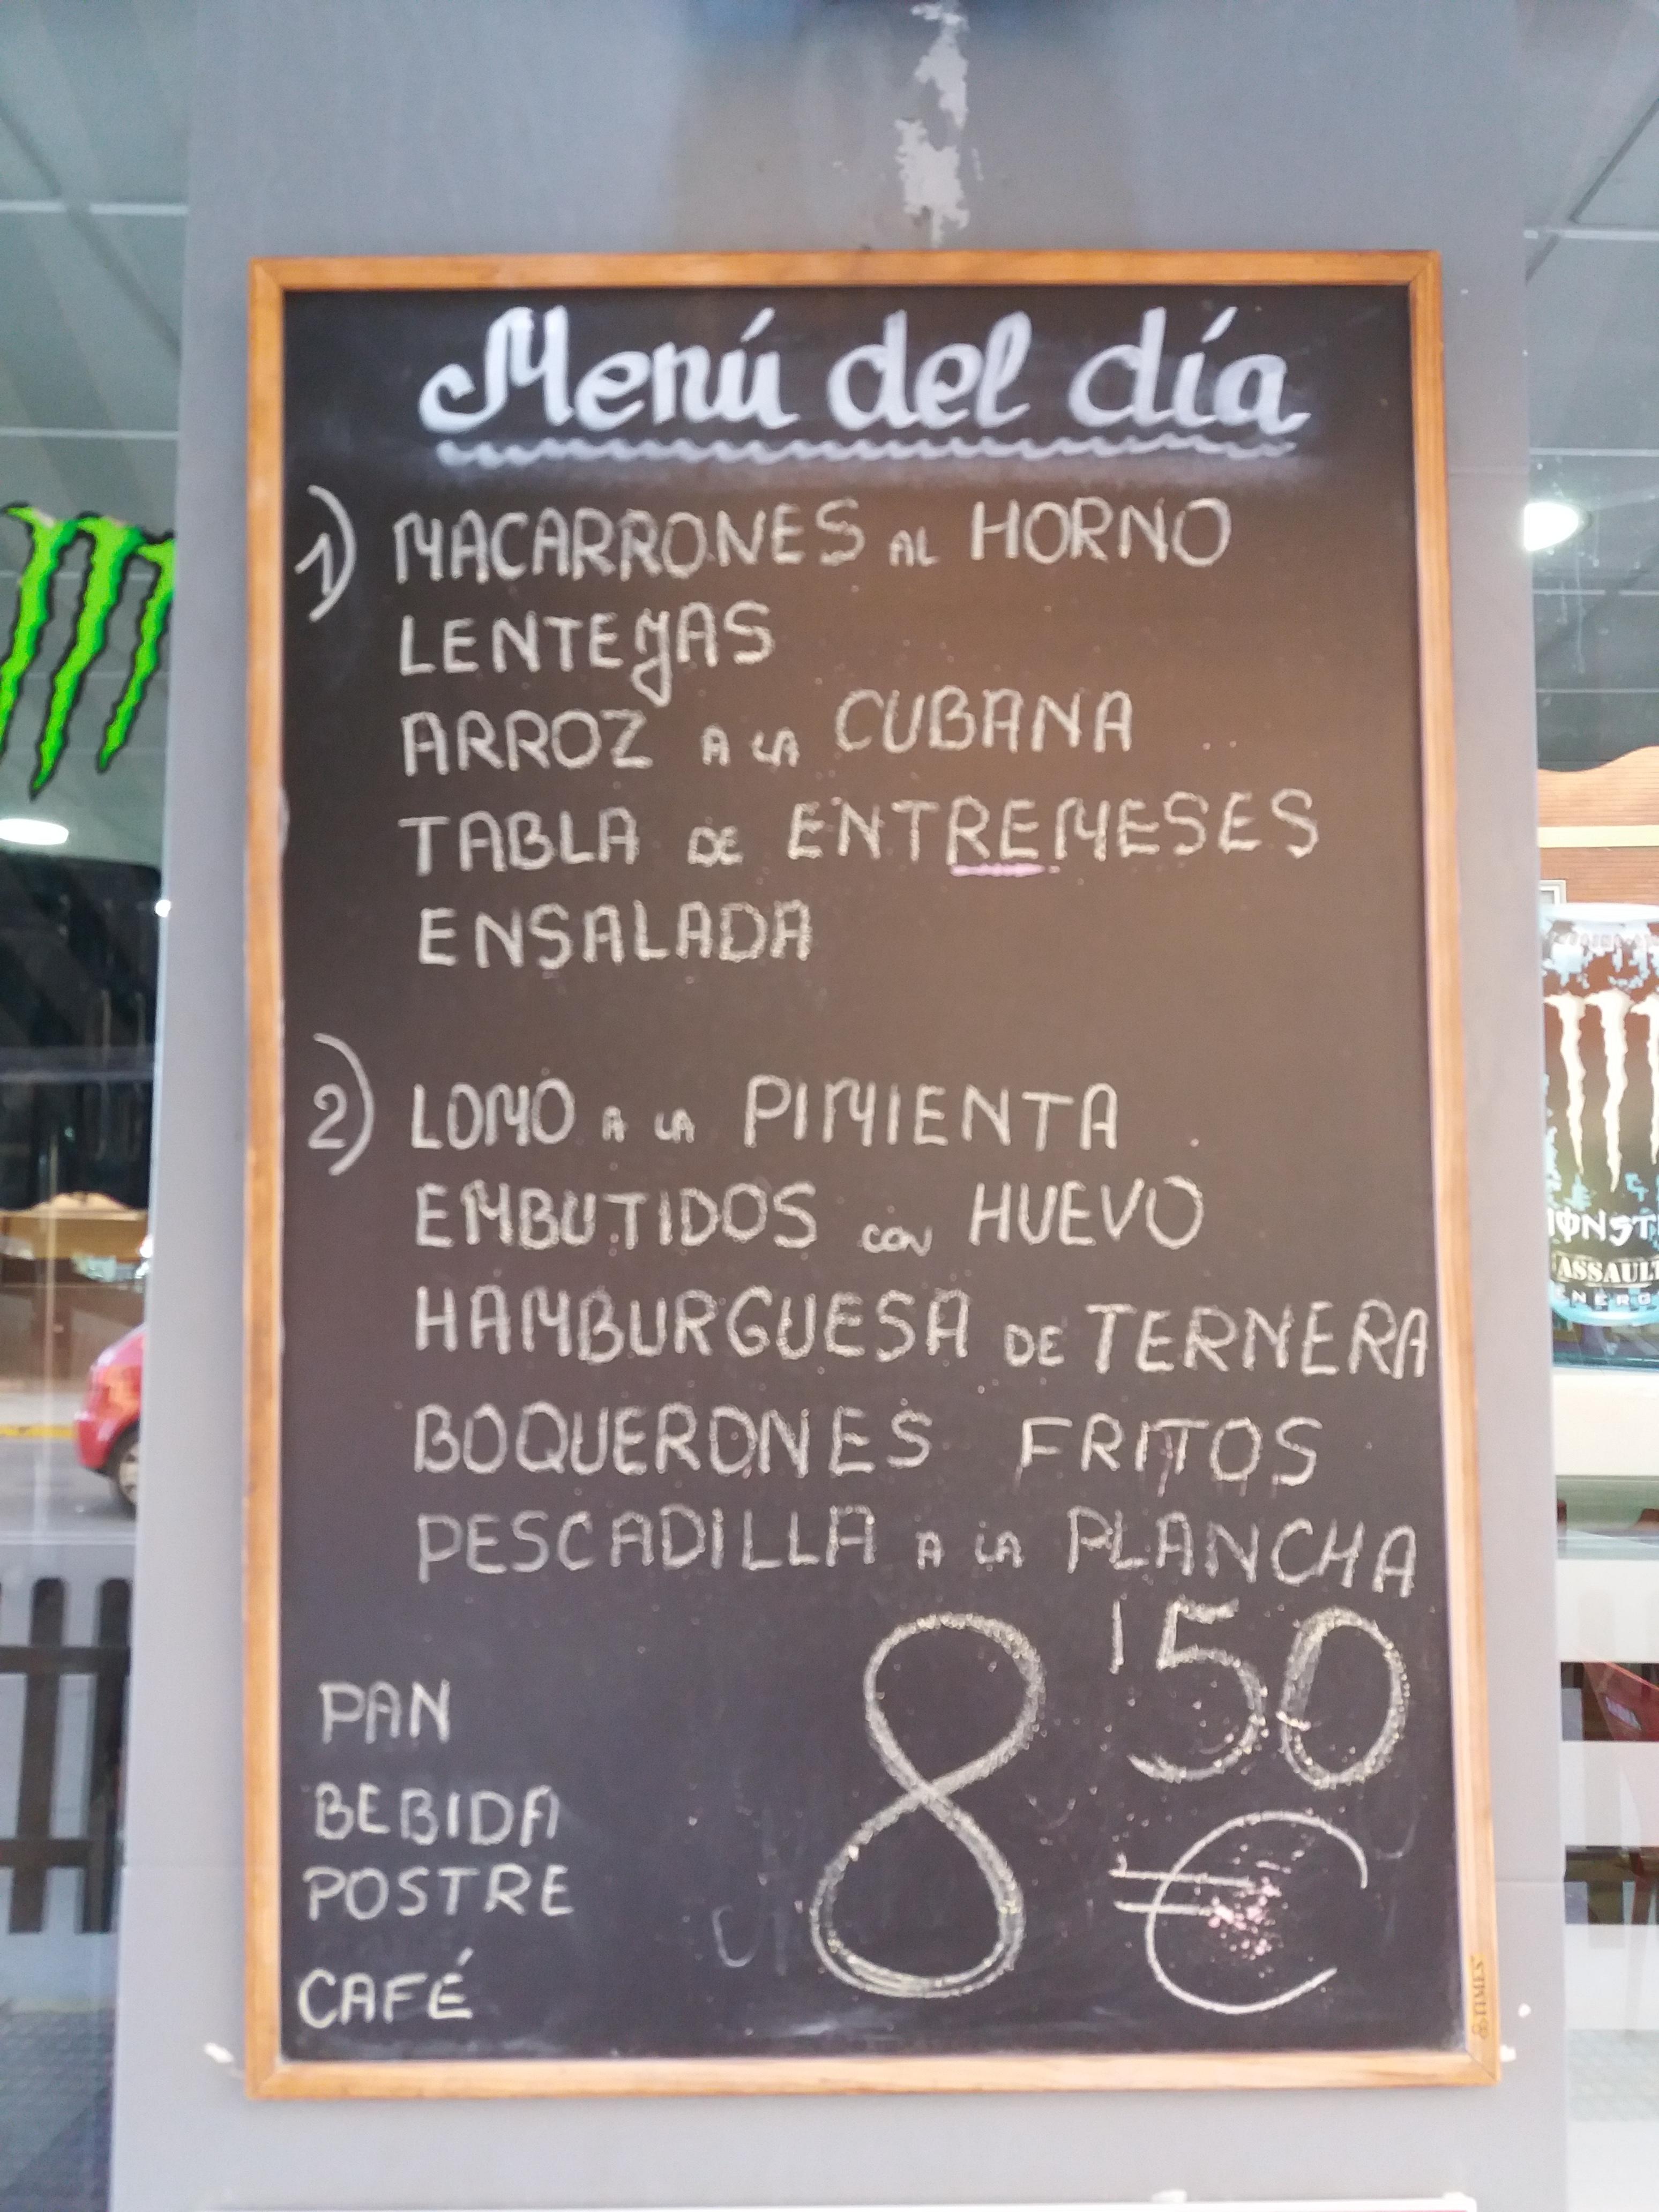 Menú del día
1) MACARRONES AL HORNO
LENTEJAS
ARROZ A LA CUBANA
TABLA DE ENTREMESES
ENSALADA
2) LOMO A LA PIMIENTA
EMBUTIDOS CON HUEVO
HAMBURGUESA DE TERNERA
BOQUERONES FRITOS
PESCADILLA A LA PLANCHA
8'50 €
PAN
BEBIDA
POSTRE
CAFÉ
TIMES
ASSAULT